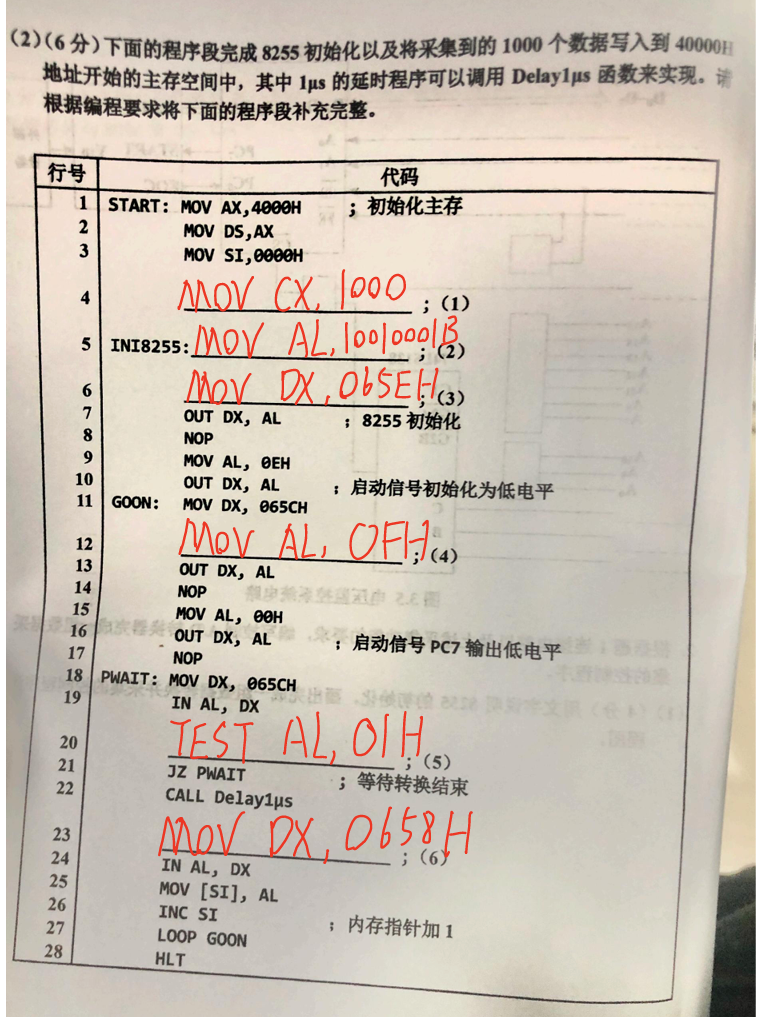 (2)(6 分)下面的程序段完成 8255 初始化以及将采集到的 1000 个数据写入到 40000H
地址开始的主存空间中，其中 1μs 的延时程序可以调用 Delay1μs 函数来实现。请
根据编程要求将下面的程序段补充完整。
行号 代码
1 START: MOV AX,4000H ; 初始化主存
2 MOV DS,AX
3 MOV SI,0000H
4 MOV CX, 1000 ; (1)
5 INI8255: MOV AL, 10010001B ; (2)
6 MOV DX, 065EH ; (3)
7 OUT DX, AL ; 8255 初始化
8 NOP
9 MOV AL, 0EH
10 OUT DX, AL ; 启动信号初始化为低电平
11 GOON: MOV DX, 065CH
12 MOV AL, 0FH ; (4)
13 OUT DX, AL
14 NOP
15 MOV AL, 00H
16 OUT DX, AL ; 启动信号 PC7 输出低电平
17 NOP
18 PWAIT: MOV DX, 065CH
19 IN AL, DX
20 TEST AL, 01H ; (5)
21 JZ PWAIT ; 等待转换结束
22 CALL Delay1μs
23 MOV DX, 0658H ; (6)
24 IN AL, DX
25 MOV [SI], AL
26 INC SI ; 内存指针加 1
27 LOOP GOON
28 HLT